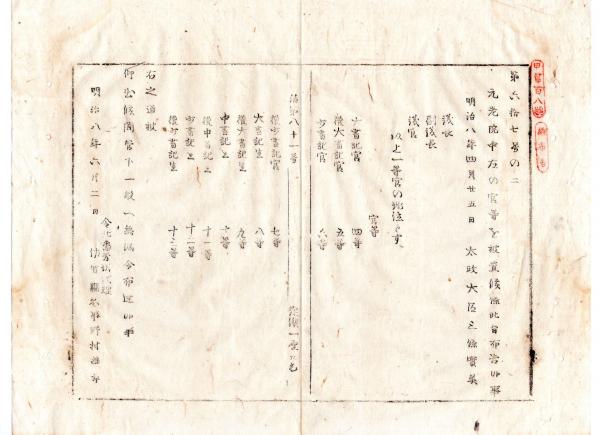 甲第百八号
第六拾七号の二
元老院中左の官等を被置候條此旨布告候事
明治八年四月廿五日 太政大臣三條實美
議長
副議長
議官
以上一等官の地位とす
官等
大書記官 四等
權大書記官 五等
少書記官 六等
第八十一号
權少書記官 七等
大書記生 八等
權大書記生 九等
中書記生 十等
權中書記生 十一等
少書記生 十二等
權少書記生 十三等
右之通被
仰出候條管下一般へ無洩令布達候事
明治八年六月二日